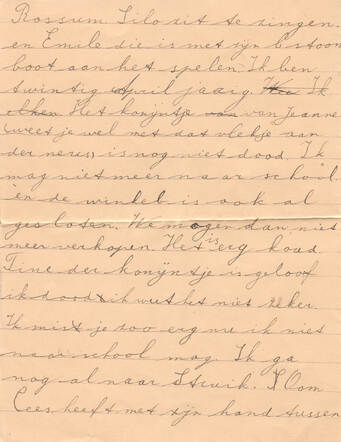 Rossum Lilo zit te zingen.
en Emile die is met zijn bstoom
boot aan het spelen. Ik ben
twintig April jaarig. Ik
Het konijntje van Jeanne
(weet je wel met dat vlekje aan
der neus) is nog niet dood. Ik
mag niet meer naar school.
en de winkel is ook al
gesloten. We mogen dan niet
meer verkopen. Het is erg koud.
Tine der konijntje is geloof
ik dood ik weet het niet zeker.
Ik mist je zoo erg nu ik niet
naar school mag. Ik ga
nog al naar Struik. Oom
Cees heeft met zijn hand tussen